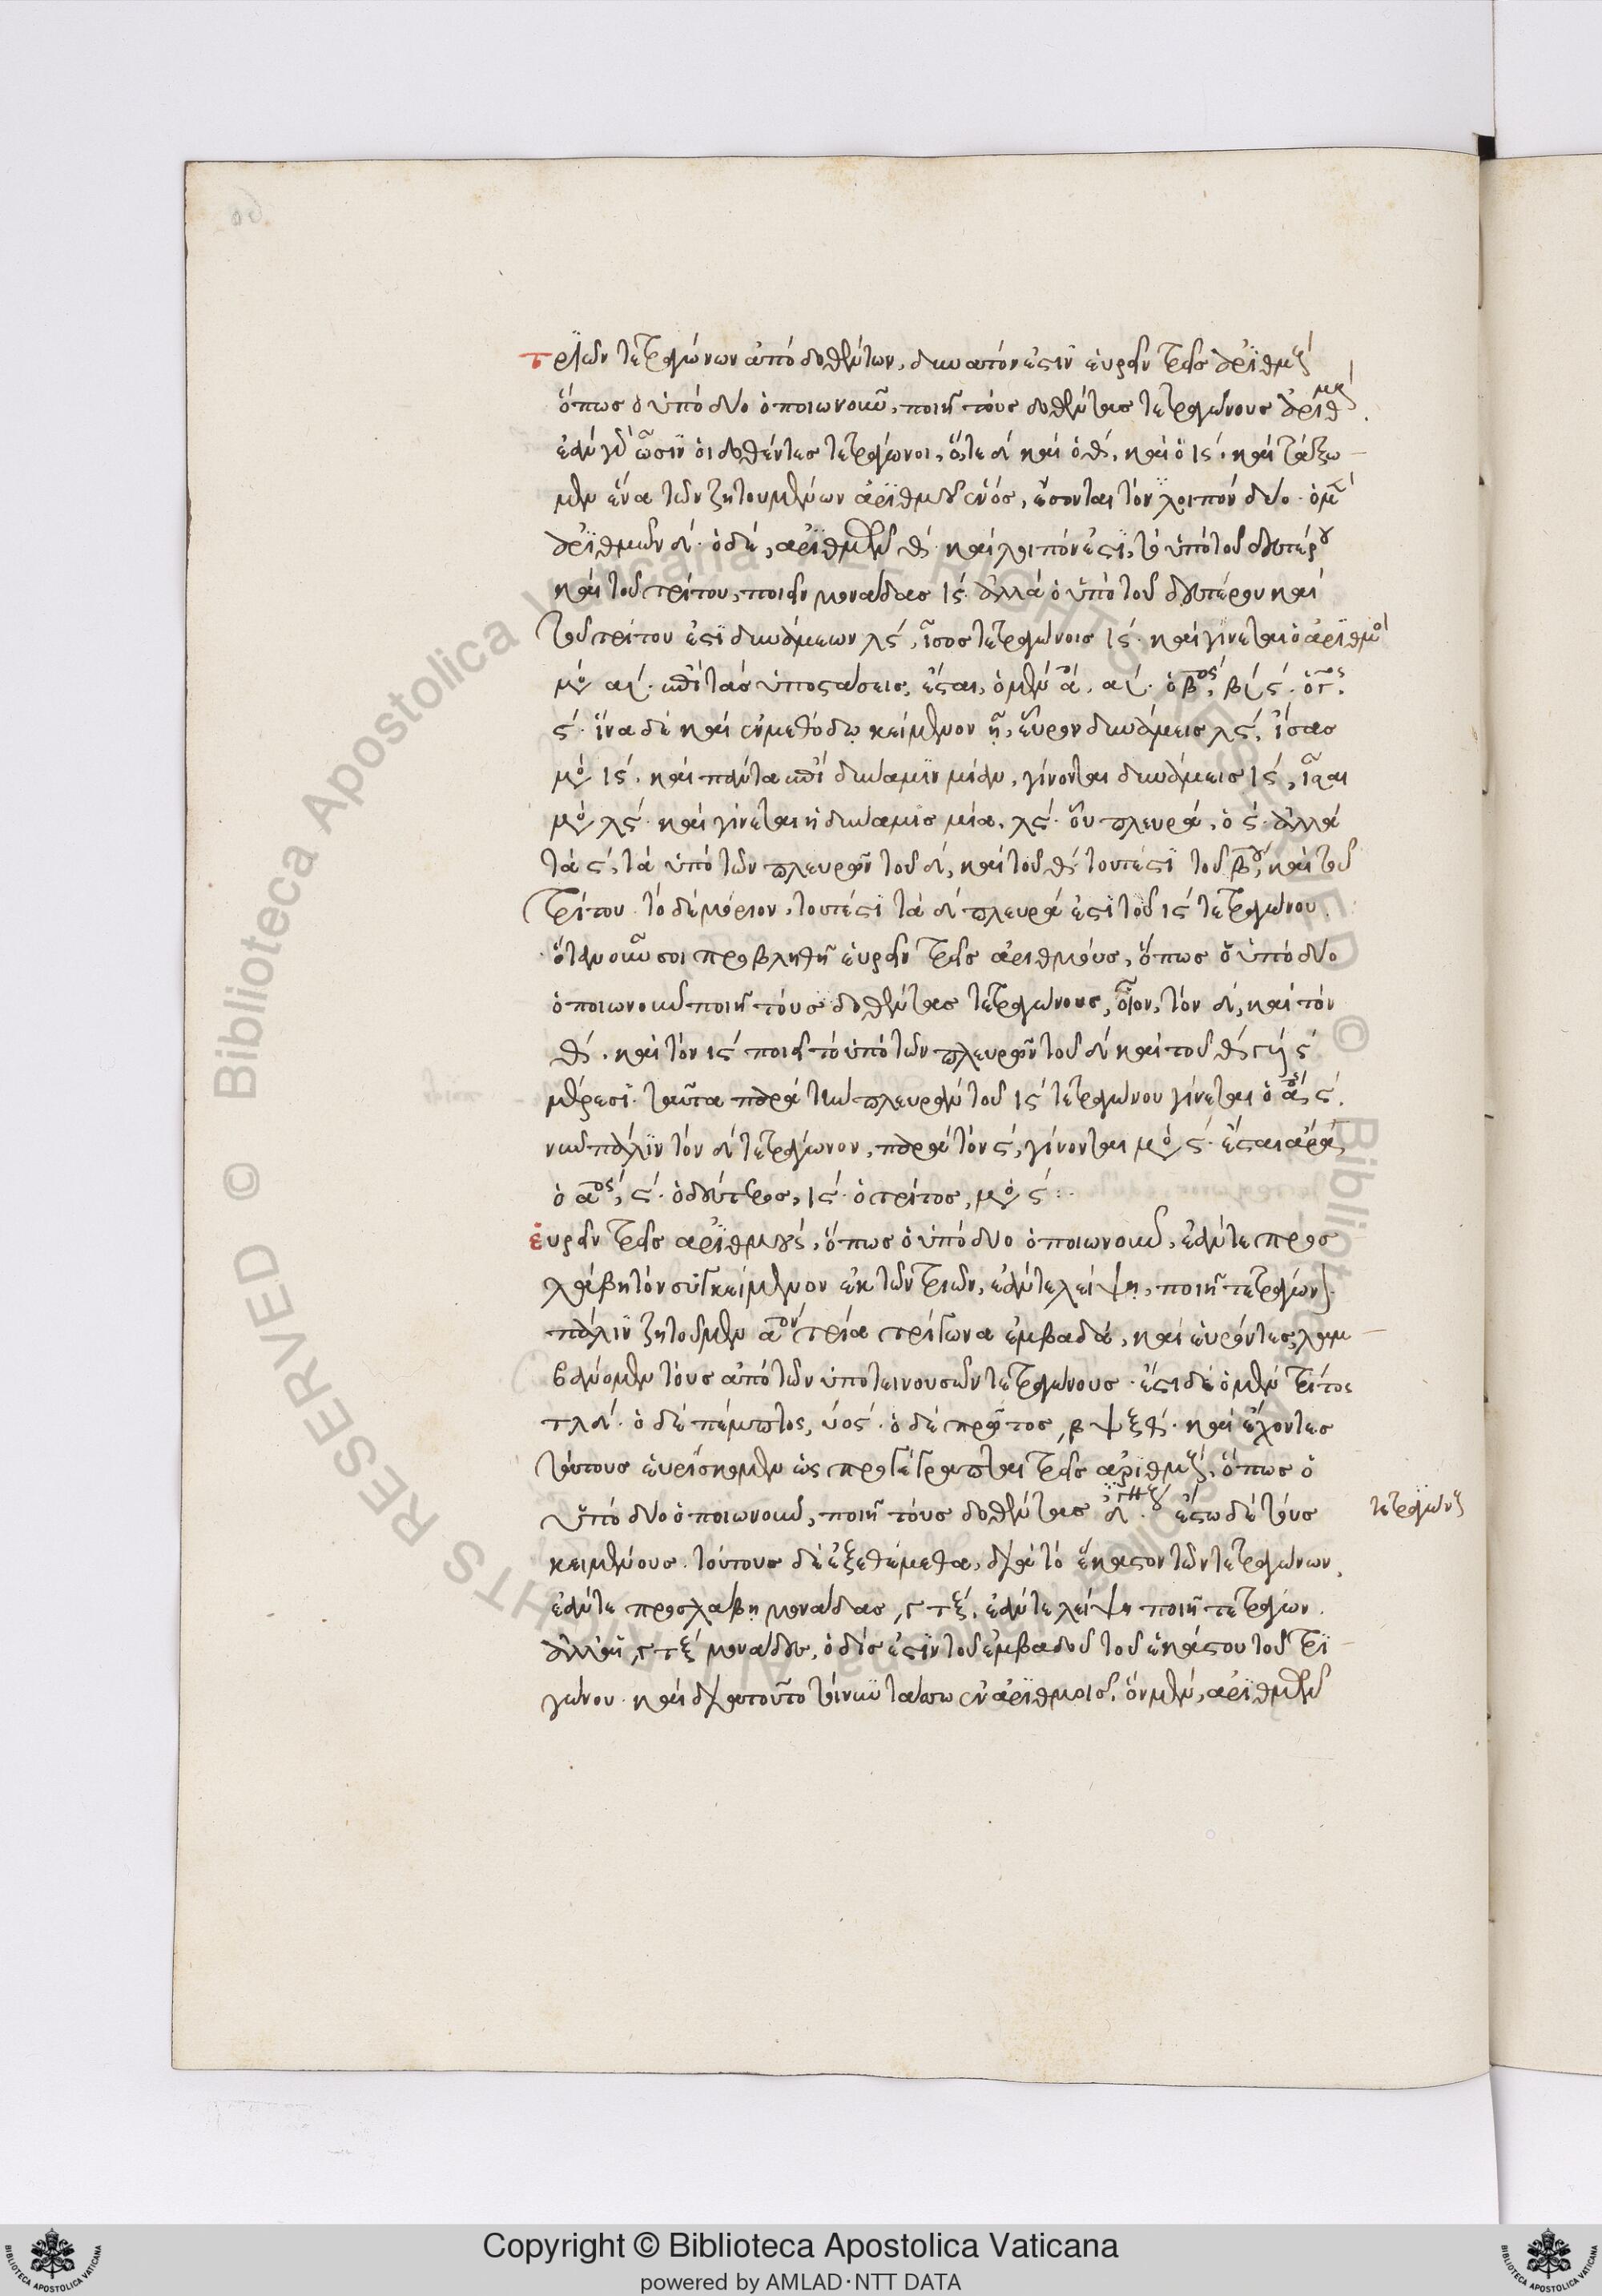 τριῶν τετραγώνων ἀποδοθέντων, δυνατόν ἐστιν εὑρεῖν τρεῖς ἀριθμούς
ὅπως ὁ ὑπὸ δύο ὁποιωνοῦν, ποιῇ τοὺς δοθέντας τετραγώνους ἀριθμούς.
ἐὰν γὰρ ὦσιν οἱ δοθέντες τετράγωνοι, ὅ,τε δ καὶ ὁ θ, καὶ ὁ ις. καὶ τάξω
μεν ἕνα τῶν ζητουμένων ἀριθμοῦ ἑνός, ἔσονται τὸν λοιπὸν δύο. ὁ μὲν
ἀριθμῶν δ. ὁ δὲ, ἀριθμοστῶν θ. καὶ λοιπόν ἐστι, τὸ ὑπὸ τοῦ δευτέρου
καὶ τοῦ τρίτου, ποιεῖν μονάδας ις. ἀλλὰ ὁ ὑπὸ τοῦ δευτέρου καὶ
τοῦ τρίτου ἐστὶ δυνάμεων λς, ἴσος τετραγώνοις ις. καὶ γίνεται ὁ ἀριθμὸς
ὁ β, ὁ γ
ς. ἵνα δὲ καὶ ἐν μεθόδῳ κείμενον ᾖ, εὗρον δυνάμεις λς, ἴσας
μο ις. καὶ πάντα ἐπὶ δύναμιν μίαν, γίνονται δυνάμεις ις, ἴσαι
μο λς. καὶ γίνεται ἡ δύναμις μία, λς. οὗ πλευρά, ὁ ς. ἀλλὰ
τὰ ς, τὰ ὑπὸ τῶν πλευρῶν τοῦ δ, καὶ τοῦ θ τουτέστι τοῦ β, καὶ τοῦ
τρίτου. τὸ δὲ μόριον, τουτέστι τὰ δ πλευρά ἐστι τοῦ ις τετραγώνου.
ὅταν οὖν σοι προβληθῇ εὑρεῖν τρεῖς ἀριθμούς, ὅπως ὁ ὑπὸ δύο
ὁποιωνοῦν ποιῇ τοὺς δοθέντας τετραγώνους, οἷον, τὸν δ, καὶ τὸν
θ. καὶ τὸν ις ποίει τὸ ὑπὸ τῶν πλευρῶν τοῦ δ καὶ τοῦ θ ς
μέρεσι. ταῦτα παρὰ τὴν πλευρὰν τοῦ ις τετραγώνου γίνεται ὁ α, ς.
νῦν πάλιν τὸν δ τετράγωνον, παρὰ τὸν ς, γίνονται μο ς. ἔσται ἄρα
ὁ αος, ς. ὁ δεύτερος, ις. ὁ τρίτος, μο ς :
εὑρεῖν τρεῖς ἀριθμούς, ὅπως ὁ ὑπὸ δύο ὁποιωνοῦν, ἐάν τε προσ
λάβῃ τὸν συγκείμενον ἐκ τῶν τριῶν, ἐάν τε λείψῃ, ποιῇ τετράγωνον.
πάλιν ζητοῦμεν αον τρία τρίγωνα ἐμβαδά, καὶ εὑρόντες, λαμ
βάνομεν τοὺς ἀπὸ τῶν ὑποτεινουσῶν τετραγώνους. ἔστι δὲ ὁ μὲν τρίτος
τλδ. ὁ δὲ πέμπτος, υος. ὁ δὲ πρῶτος, βψξθ. καὶ ἔχοντες
τούτους εὑρίσκομεν ὡς προγέγραπται τρεῖς ἀριθμούς, ὅπως ὁ
ὑπὸ δύο ὁποιωνοῦν, ποιῇ τοὺς δοθέντας ἔστω δὲ τοὺς
τετραγώνους
κειμένους. τούτους δὲ ἐξεθέμεθα, διὰ τὸ ἕκαστον τῶν τετραγώνων,
ἐάν τε προσλάβῃ μονάδας ,γτξ, ἐάν τε λείψῃ ποιῇ τετράγων.
ἀλλ' αἱ ,γτξ μονάδες, ὁ δίς ἐστιν τοῦ ἐμβαδοῦ τοῦ ἑκάστου τοῦ τρι
γώνου. καὶ διὰ τοῦτο τάσσω ἐν ἀριθμοῖς, ὃν μὲν, ἀριθμῶν